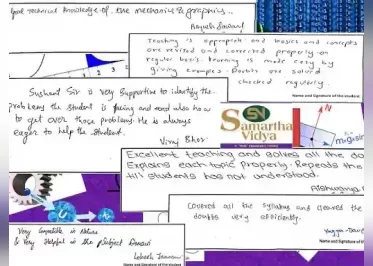 good technical knowledge of the mechanics & graphics..
Teaching is appropriate and basics and concepts
are revised and corrected properly on
regular basis. Learning is made easy by
giving examples. Doubts are solved
checked regularly.
Name and Signature of the student
Sushant Sir is very Supportive to identify the
problems the student is facing and and also how
to get over those problems. He is always
eager to help the student.
Viraj Bhor
SN
Samartha
Vidya
N
Excellent teaching and solves all the do
Explains each topic properly. Repeats the
till students has not understood.
Covered all the syllabus and cleared the
doubts very efficiently.
Name and Signature of t
Very Compatible in Nature
& Very Helpful in the Subject Domain
Name and Signature of the student